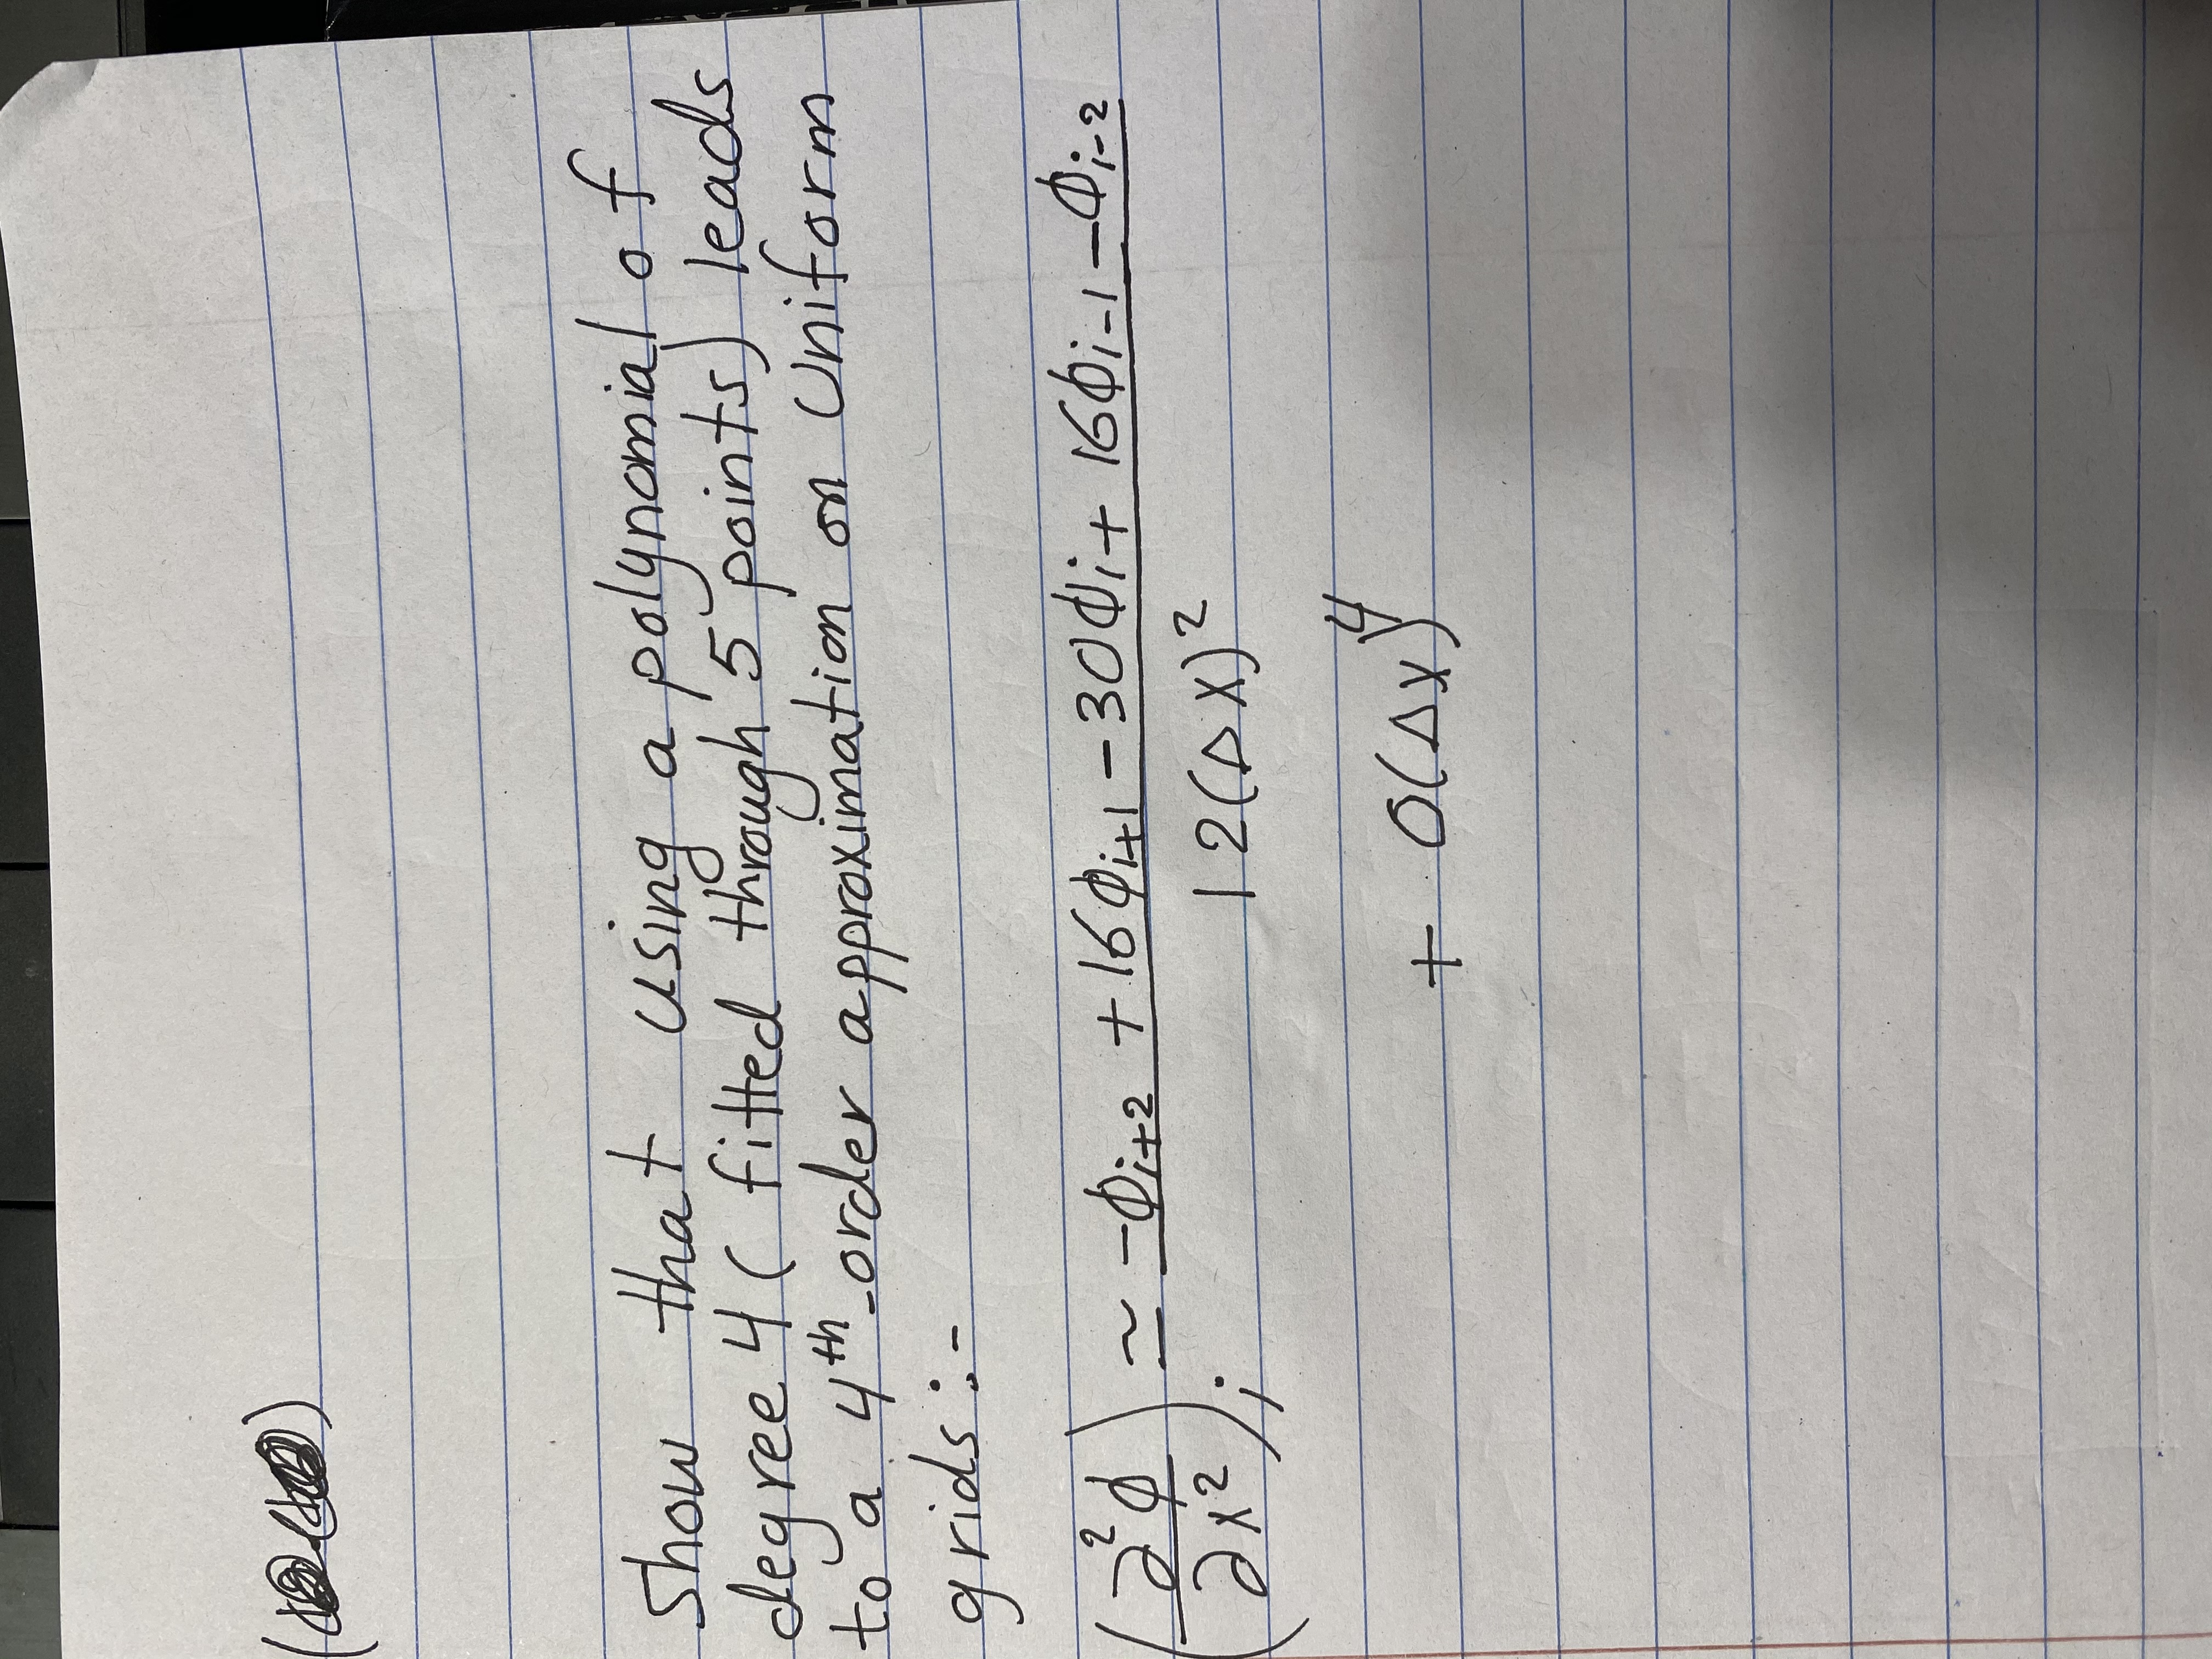 Show that using a polynomial of
degree 4 ( fitted through 5 points) leads
to a 4th-order approximation on Uniform
grids:-
(∂²ϕ/∂x²)i ≃ (-ϕi+2 + 16ϕi+1 - 30ϕi + 16ϕi-1 - ϕi-2)/(12(Δx)²)
+ O(Δx)⁴